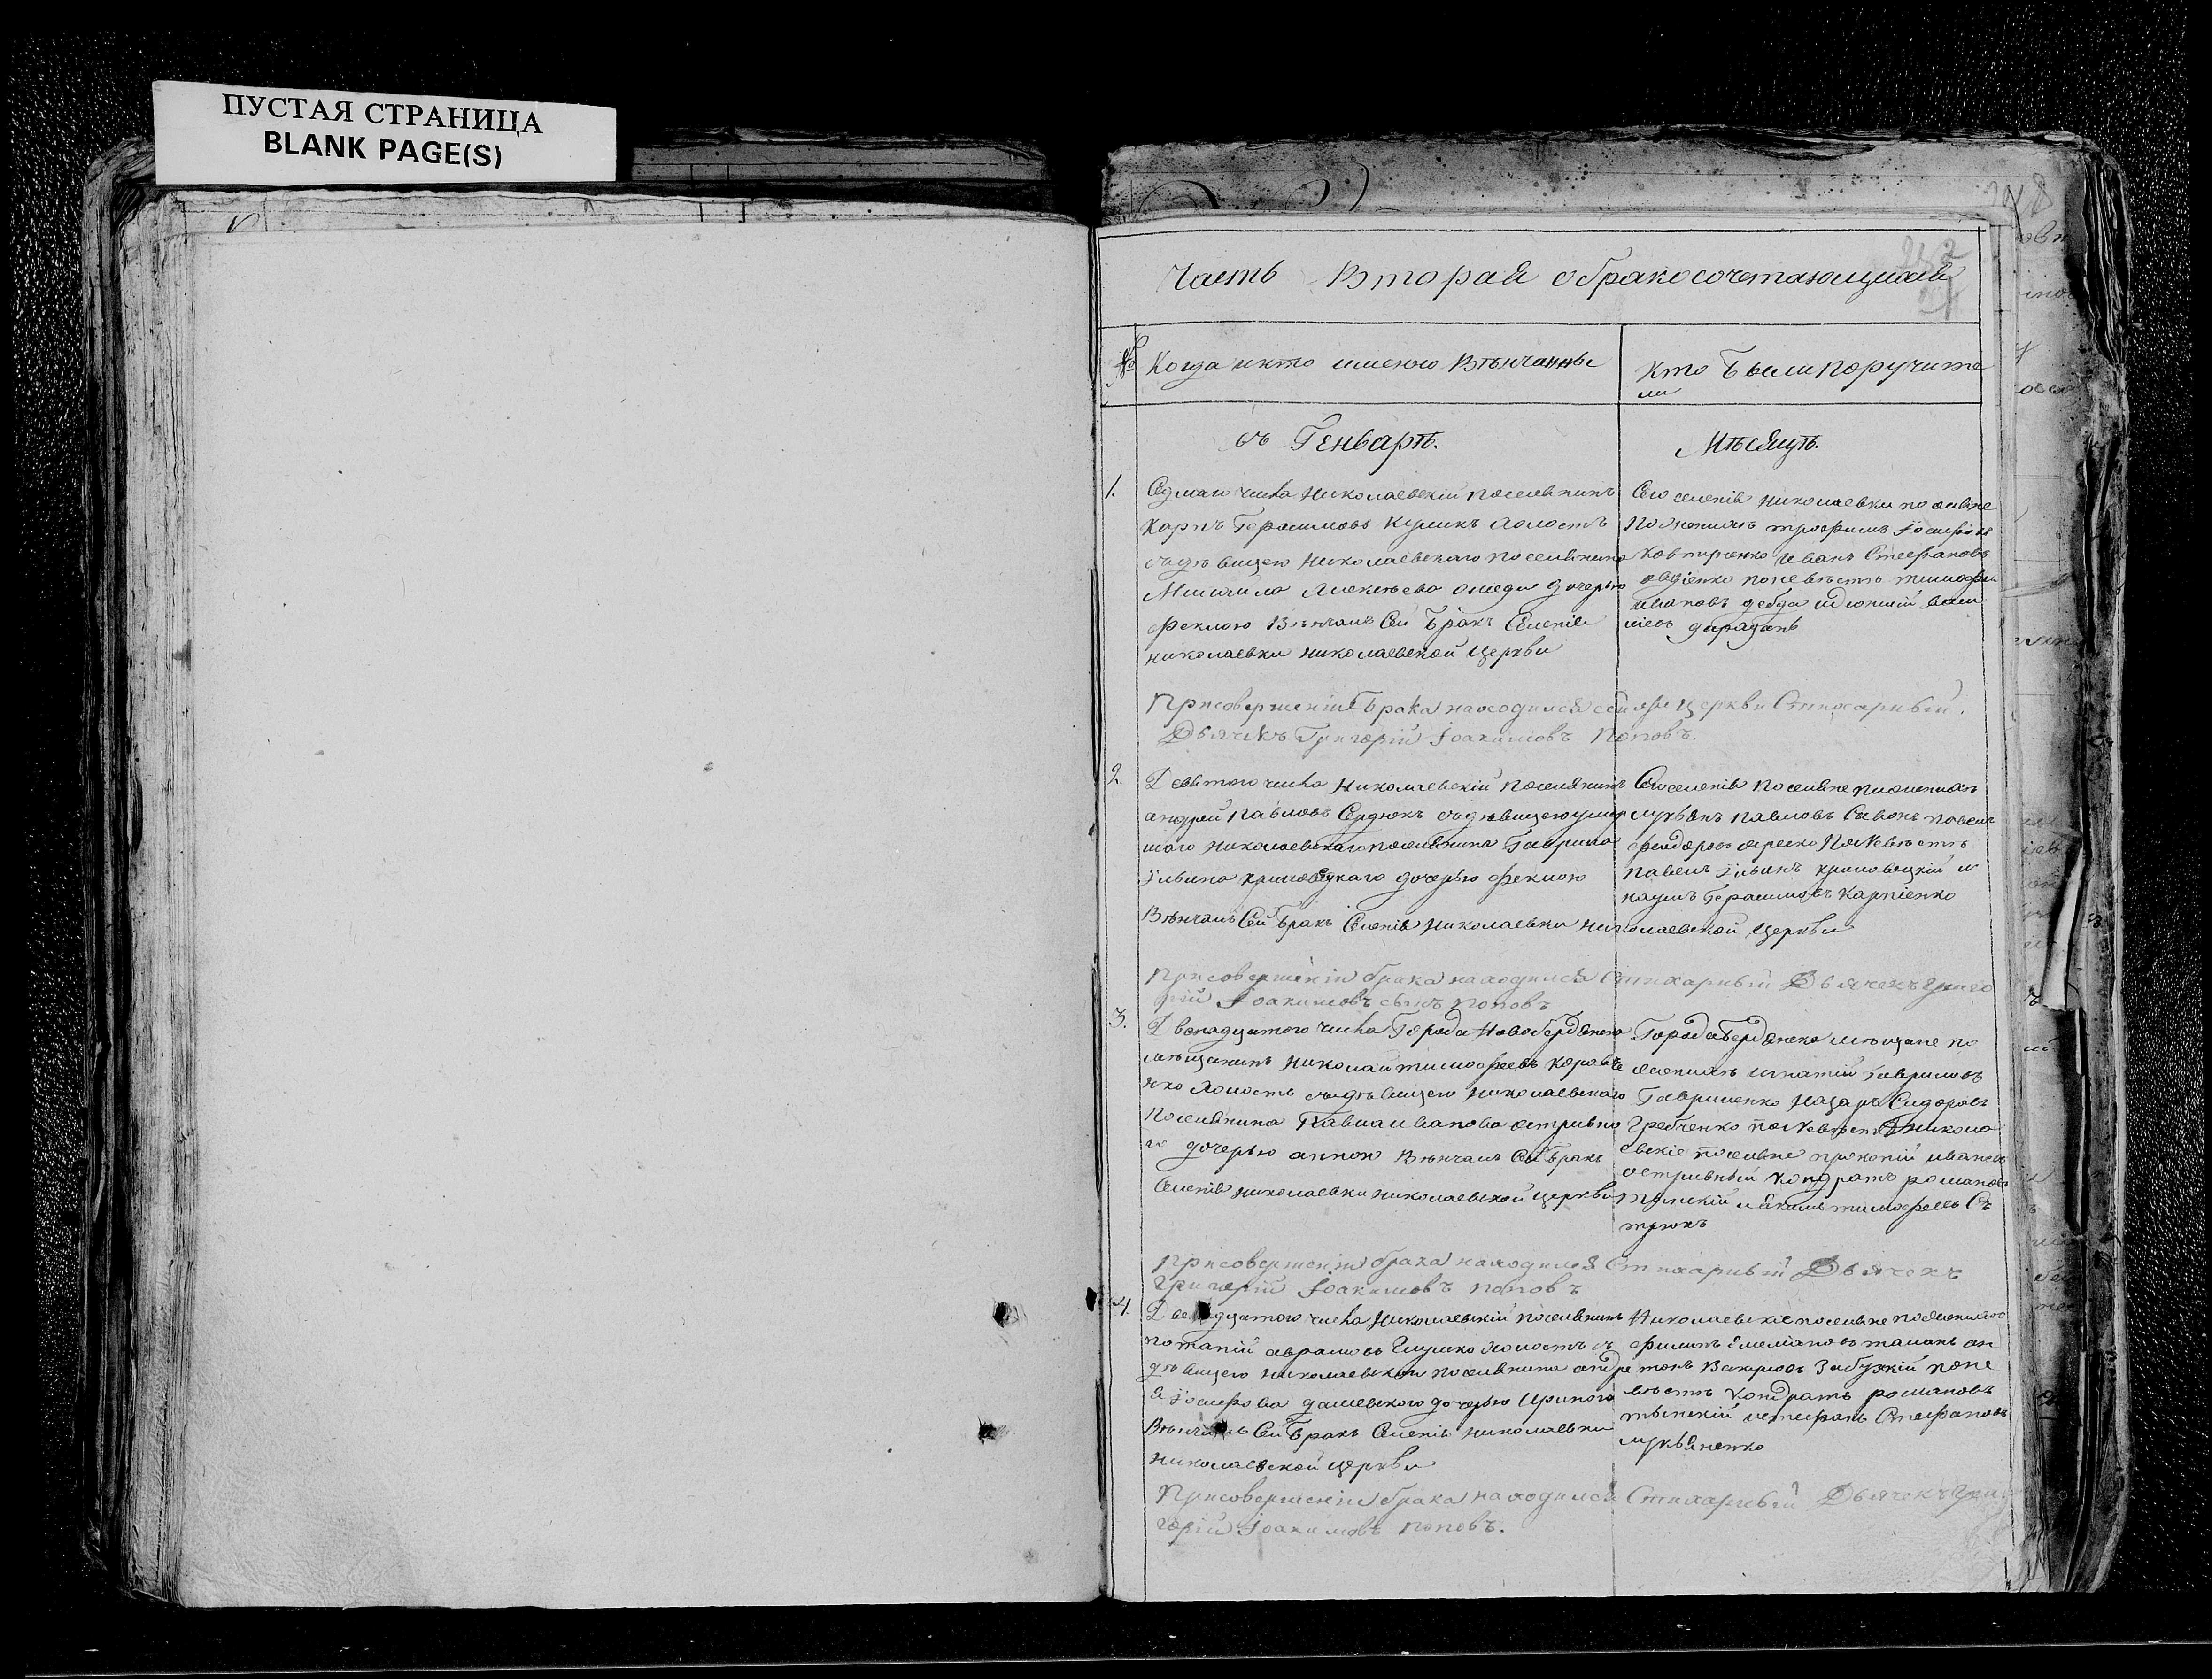 ПУСТАЯ СТРАНИЦА
BLANK PAGE(S)
Часть Вторая о бракосочетающихся
№ Когда и кто именно Вѣнчанны
Кто были поручите
ли
въ Генварѣ.
Мѣсяцѣ.
1.
Седмаго числа Николаевскій поселянинъ
Карпъ Герасимовъ Куликъ холостъ
съ дѣвицею Николаевскаго поселянина
Михаила Алексѣева дочерью
Феклою Вѣнчалъ Сей бракъ Селенія
николаевки николаевской Церкви
Сего селенія николаевки поселяне
По женихѣ трофимъ Іосифовъ
Иванъ Стефановъ
овдіенко по невѣстѣ тимофей
ивановъ
При совершеніи брака находился сей церкви Стихарный
Дьячекъ Григорій Іоакимовъ Поповъ.
2.
Девятого числа Николаевскій поселянинъ
андрей Павловъ Сердюкъ съ дѣвицею умер
шаго николаевскаго поселянина Гаврила
Ильина криновецкаго дочерью Феклою
Вѣнчалъ Сей бракъ Селенія Николаевки николаевской Церкви
Сего селенія поселяне по женихѣ
лукьянъ павловъ Савонъ павелъ
феодоровъ По невѣстѣ
павелъ Ильинъ криновецкій и
наумъ Герасимовъ Карпіенко
При совершеніи брака находился Стихарный Дьячекъ Григо
рій Іоакимовъ сынъ поповъ
3.
Двенадцатого числа Города Новобердянска
мѣщанинъ николай тимофеевъ
нко холостъ съ дѣвицею николаевскаго
поселянина Павла иванова остривно
го дочерью анною Вѣнчалъ Сей бракъ
Селенія николаевки николаевской церкви
Города бердянска мѣщане по
женихѣ игнатій гавриловъ
Гавриленко Назаръ Сидоровъ
Гребченко по невѣстѣ никола
евскіе поселяне прокопій ивановъ
остривный Кондратъ романовъ
тимофеевъ Се
рдюкъ
При совершеніи брака находился Стихарный Дьячекъ
Григорій Іоакимовъ поповъ
4.
Двенадцатого числа Николаевскій поселянинъ
потапій аврамовъ Глушко холостъ съ
дѣвицею николаевскаго поселянина андре
я Іосифова дашевского дочерью Ириною
Вѣнчалъ Сей бракъ Селенія николаевки
николаевской церкви
Николаевскіе поселяне по женихѣ
филипъ Емеліановъ ан
тонъ Забузкій по не
вѣстѣ Кондратъ романовъ
Стефановъ
лукьяненко
При совершеніи брака находился Стихарный Дьячекъ Гри
горій Іоакимовъ поповъ.